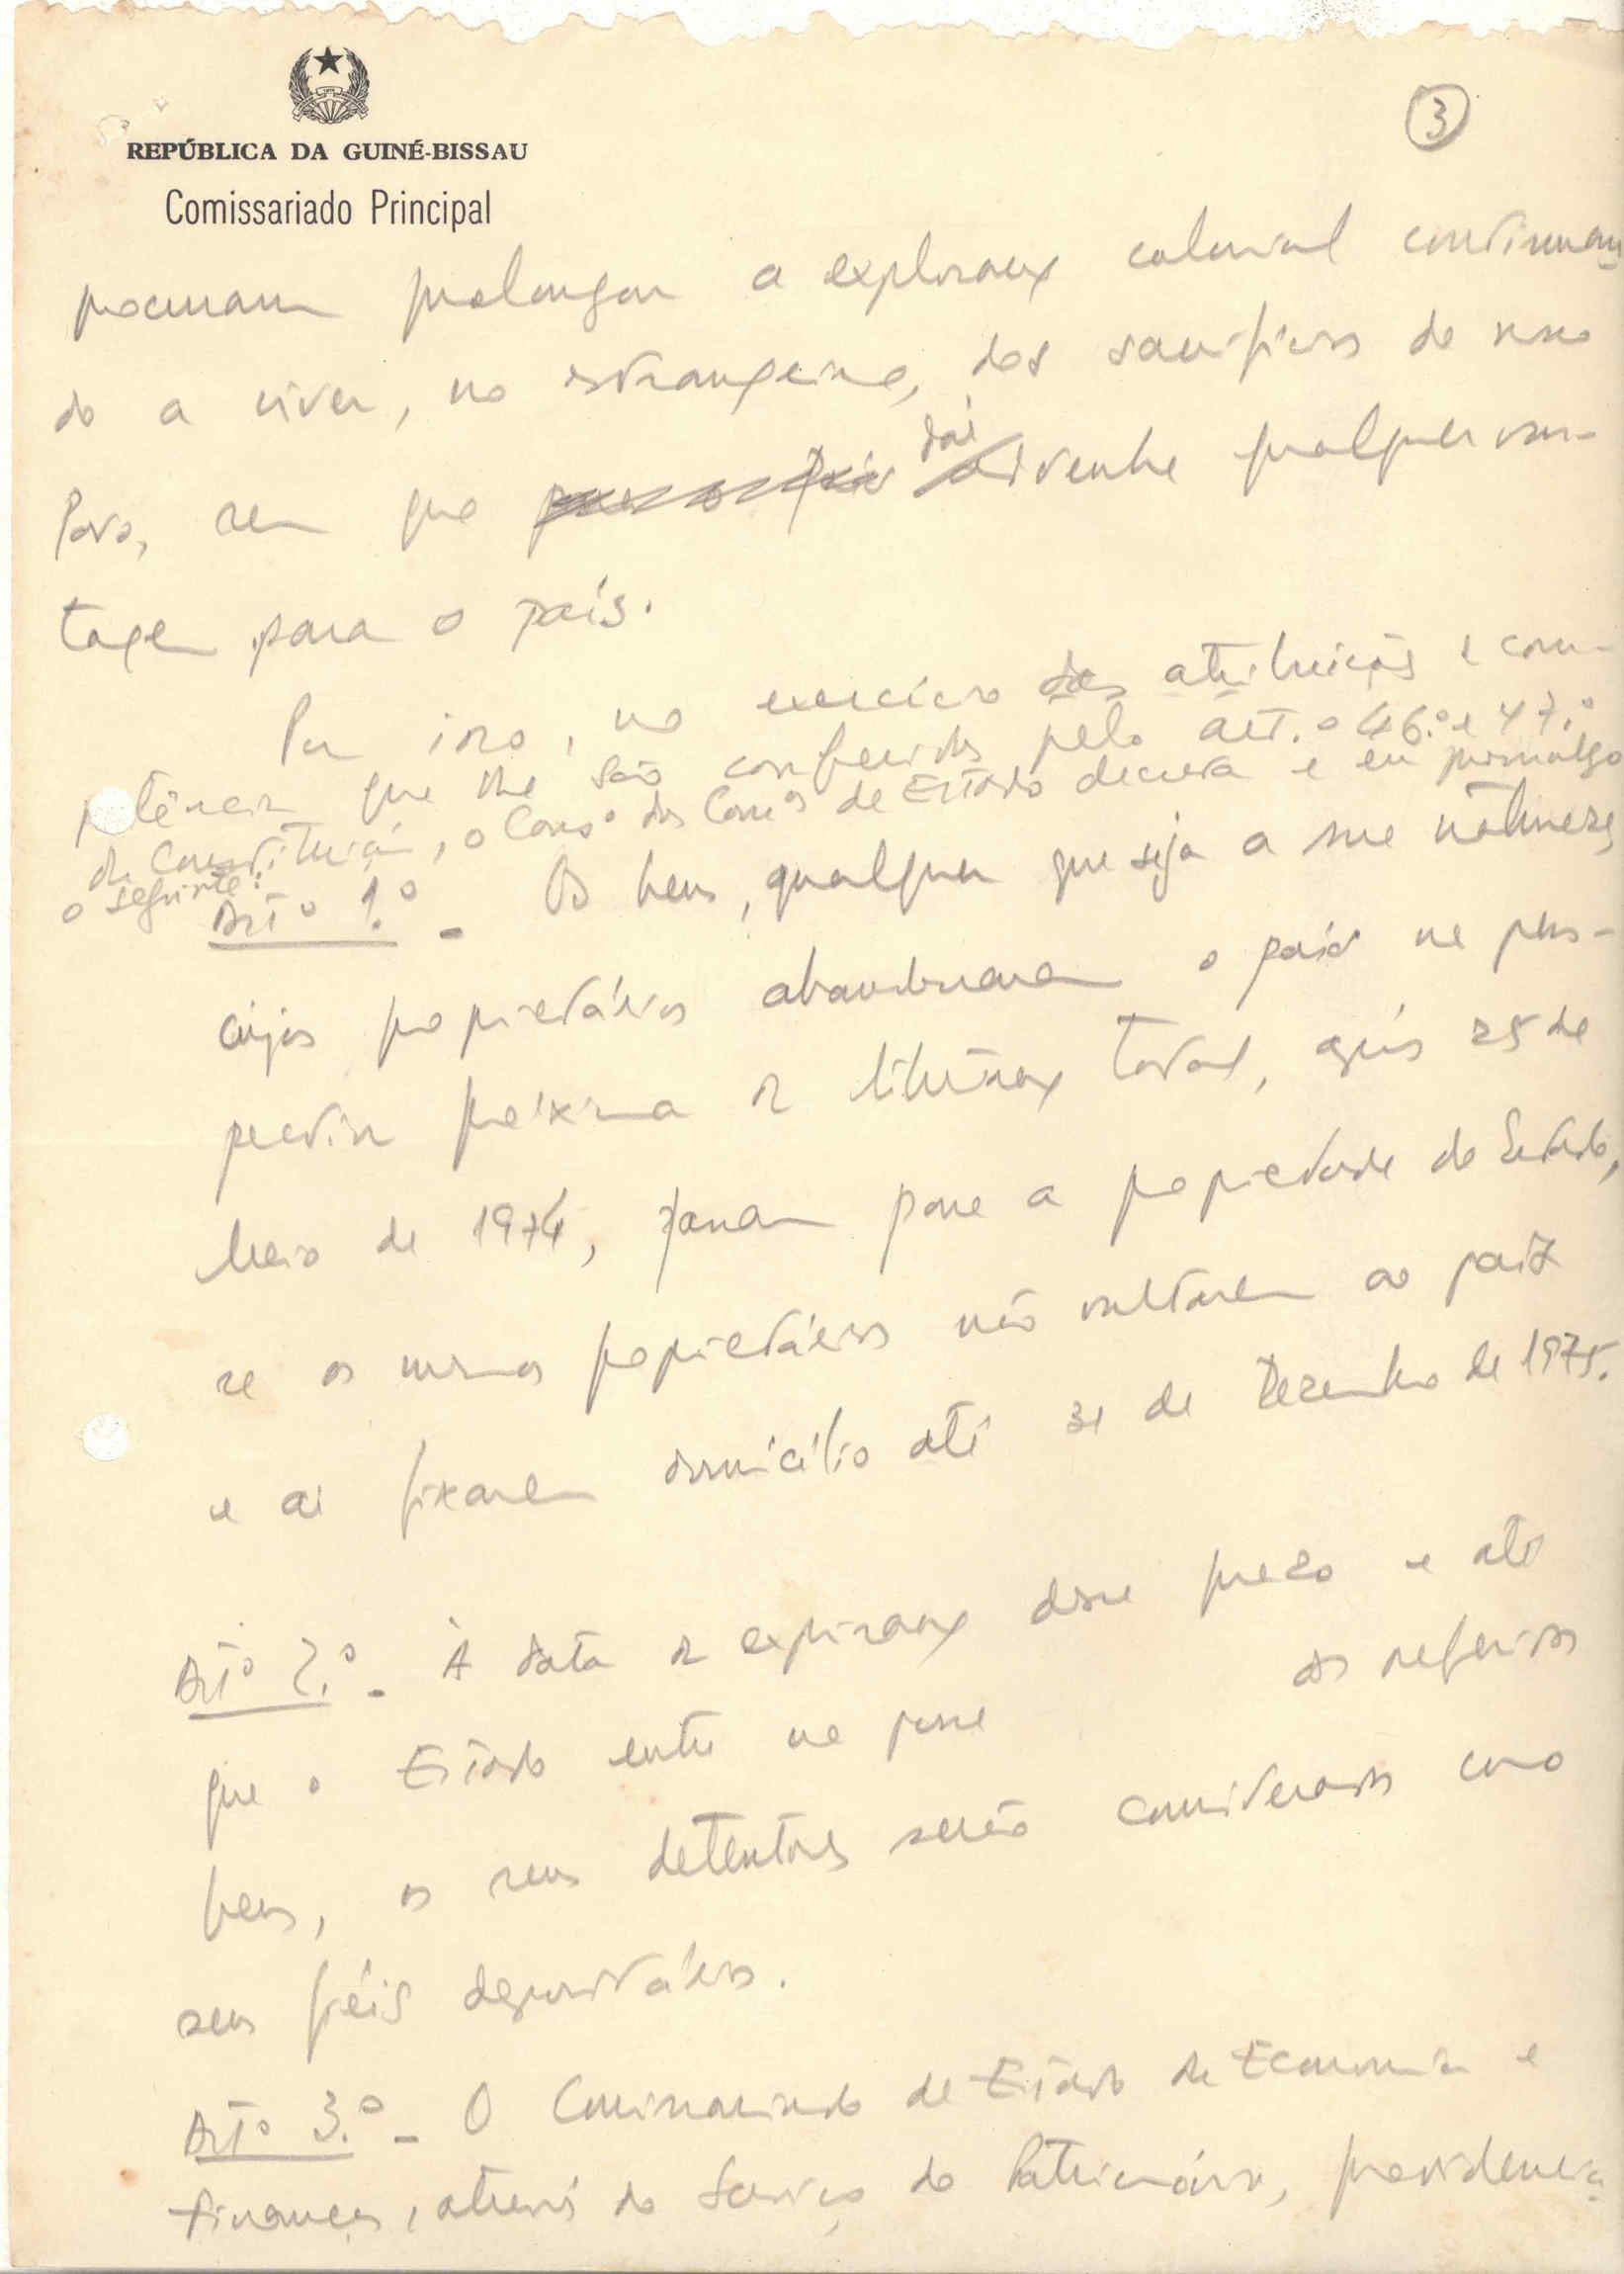 3
REPÚBLICA DA GUINÉ-BISSAU
Comissariado Principal
procuram prolongar a exploração colonial continuan
do a viver, no estrangeiro, dos sacrifícios do nosso
Povo, sem que daí advenha qualquer van-
tagem para o país.
Por isso, no exercício das atribuições e com-
petências que lhe são conferidas pelo art.º 46.º e 47.º
da Constituição, o Conso dos Comos de Estado decreta e eu promulgo
o seguinte:
Artº 1.º - Os bens, qualquer que seja a sua natureza,
cujos proprietários abandonaram o país na pers-
pectiva próxima da libertação total, após 25 de
Maio de 1974, passam para a propriedade do Estado,
se os mesmos proprietários não voltarem ao país
e aí fixarem domicílio até 31 de Dezembro de 1975.
Artº 2.º - À data da expiração desse prazo e até
que o Estado entre na posse os referidos
bens, os seus detentores serão considerados como
seus fiéis depositários.
Artº 3.º - O Comissariado de Estado da Economia e
Finanças, através do Serviço do Património, providencia